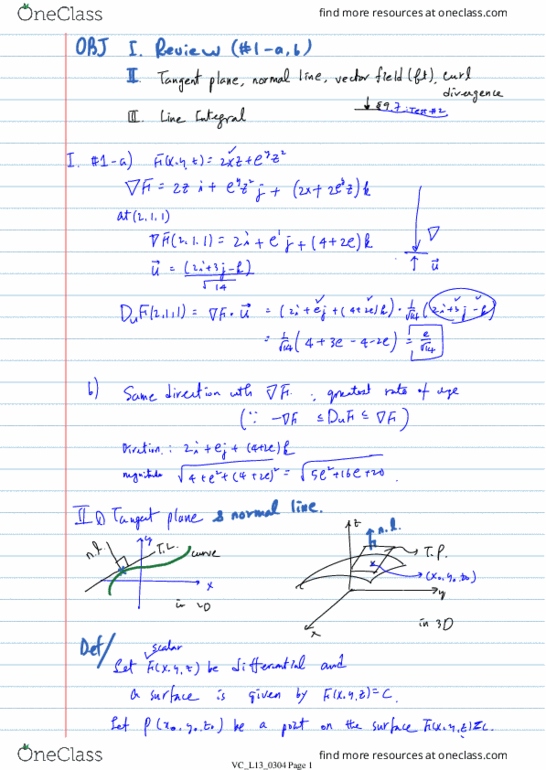 OneClass
find more resources at oneclass.com
OBJ I. Review (#1-a,b)
II. Tangent plane, normal line, vector field (ft), curl
divergence
↓ §9.7 : Test #2
III. Line Integral
I. #1-a) F(x,y,z) = 2xz + e^y z²
∇F = 2z i + e^y z² j + (2x + 2e^y z) k
at (2,1,1)
∇F(2,1,1) = 2i + e^1 j + (4+2e) k
∇
u = (2i+3j-k) / √14
↑ u
DuF(2,1,1) = ∇F · u = (2i + ej + (4+2e)k) · 1/√14 (2i+3j-k)
= 1/√14 (4 + 3e - 4 - 2e) = e/√14
b) Same direction with ∇F : greatest rate of
(∵ -∇F ≤ DuF ≤ ∇F)
Direction : 2i + ej + (4+2e)k
magnitude √4+e²+(4+2e)² = √5e²+16e+20 .
II ① Tangent plane & normal line.
n.l T.L. y curve
x
in 2D
z n.l.
T.P.
(x₀,y₀,z₀)
y
x
in 3D
Def/ scalar
Let F(x,y,z) be differential and
a surface is given by F(x,y,z)=C.
Let P(x₀,y₀,z₀) be a point on the surface F(x,y,z)=C.
OneClass
VC_L13_0304 Page 1
find more resources at oneclass.com